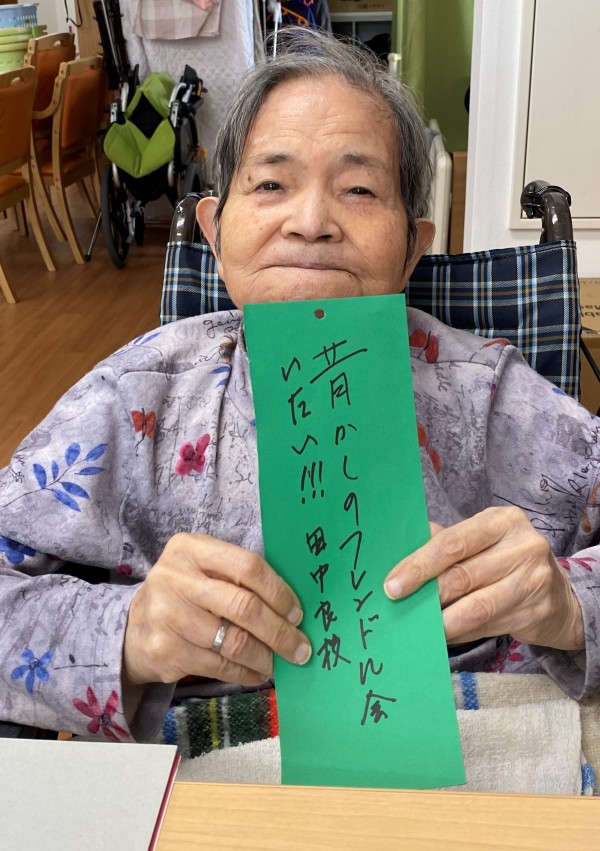 昔かしのフレンドル会
いたい!!! 田中良枝